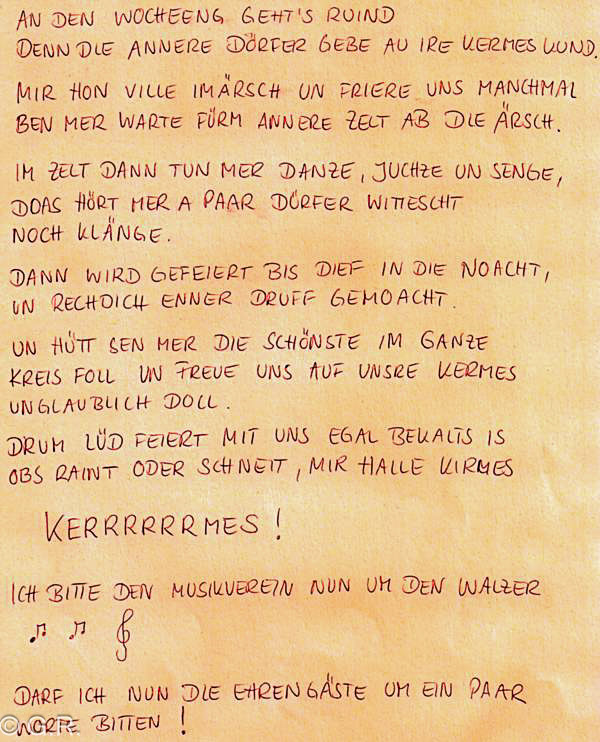 AN DEN WOCHEENG GEHT'S RUIND
DENN DIE ANNERE DÖRFER GEBE AU IRE KERMES KUND.
MIR HON VILLE IMÄRSCH UN FRIERE UNS MANCHMAL
BEN MER WARTE FÜRM ANNERE ZELT AB DIE ÄRSCH.
IM ZELT DANN TUN MER DANZE, JUCHZE UN SENGE,
DOAS HÖRT MER A PAAR DÖRFER WITTESCHT
NOCH KLÄNGE.
DANN WIRD GEFEIERT BIS DIEF IN DIE NOACHT,
UN RECHDICH ENNER DRUFF GEMOACHT.
UN HÜTT SEN MER DIE SCHÖNSTE IM GANZE
KREIS FOLL UN FREUE UNS AUF UNSRE KERMES
UNGLAUBLICH DOLL.
DRUM LÜD FEIERT MIT UNS EGAL BEKALTS IS
OBS RAINT ODER SCHNEIT, MIR HALLE KIRMES
KERRRRRRMES!
ICH BITTE DEN MUSIKVEREIN NUN UM DEN WALZER
DARF ICH NUN DIE EHRENGÄSTE UM EIN PAAR
WORTE BITTEN!
© G.R.